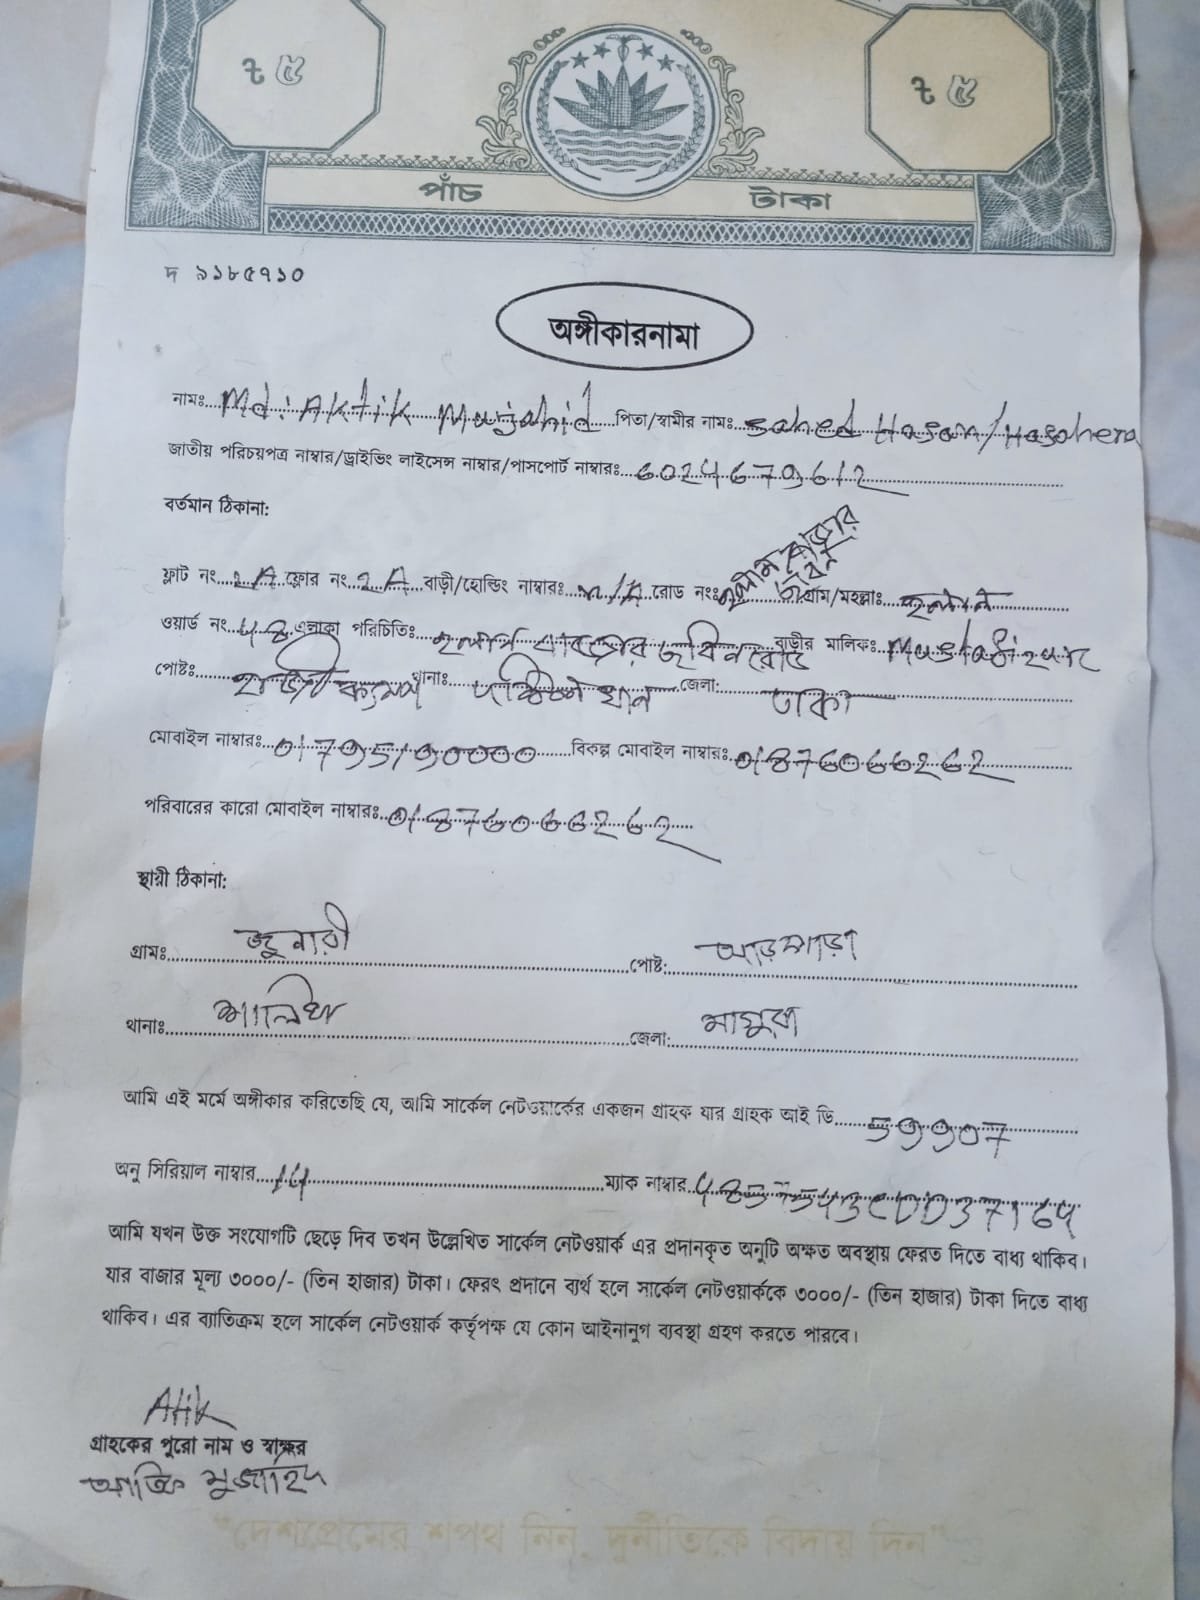 ৳ ৫ ৳ ৫
পাঁচ টাকা
দ ৯১৮৫৭১০
অঙ্গীকারনামা
নামঃ Md: Aktik Murjahid পিতা/স্বামীর নামঃ Sahed Hasan/
জাতীয় পরিচয়পত্র নাম্বার/ড্রাইভিং লাইসেন্স নাম্বার/পাসপোর্ট নাম্বারঃ 6024679612
বর্তমান ঠিকানা:
ফ্লাট নং 2A ফ্লোর নং 2A বাড়ী/হোল্ডিং নাম্বারঃ n/A রোড নংঃ গ্রাম/মহল্লাঃ
ওয়ার্ড নং 48 এলাকা পরিচিতিঃ বাড়ীর মালিকঃ
পোষ্টঃ থানাঃ জেলা: ঢাকা
মোবাইল নাম্বারঃ 01795190000 বিকল্প মোবাইল নাম্বারঃ 01876066262
পরিবারের কারো মোবাইল নাম্বারঃ 01876066262
স্থায়ী ঠিকানা:
গ্রামঃ জুনারী পোষ্ট: আড়পাড়া
থানাঃ শালিখা জেলা: মাগুরা
আমি এই মর্মে অঙ্গীকার করিতেছি যে, আমি সার্কেল নেটওয়ার্কের একজন গ্রাহক যার গ্রাহক আই ডি 59907
অনু সিরিয়াল নাম্বার 14 ম্যাক নাম্বার
আমি যখন উক্ত সংযোগটি ছেড়ে দিব তখন উল্লেখিত সার্কেল নেটওয়ার্ক এর প্রদানকৃত অনুটি অক্ষত অবস্থায় ফেরত দিতে বাধ্য থাকিব।
যার বাজার মূল্য ৩০০০/- (তিন হাজার) টাকা। ফেরৎ প্রদানে ব্যর্থ হলে সার্কেল নেটওয়ার্ককে ৩০০০/- (তিন হাজার) টাকা দিতে বাধ্য
থাকিব। এর ব্যাতিক্রম হলে সার্কেল নেটওয়ার্ক কর্তৃপক্ষ যে কোন আইনানুগ ব্যবস্থা গ্রহণ করতে পারবে।
Atik
গ্রাহকের পুরো নাম ও স্বাক্ষর
মুজাহিদ
"দেশপ্রেমের শপথ নিন, দুর্নীতিকে বিদায় দিন"